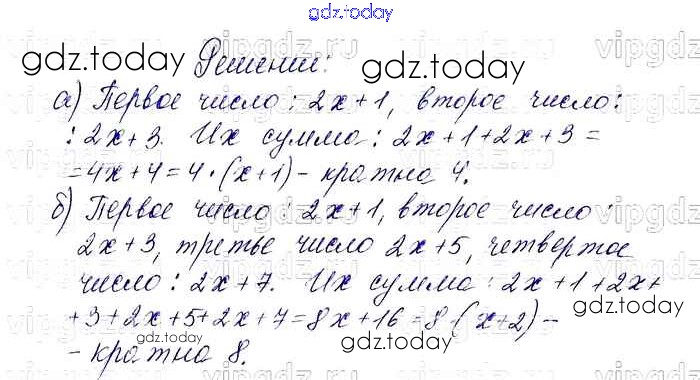 gdz.today
gdz.today Решение: gdz.today
а) Первое число: 2x+1, второе число:
: 2x+3. Их сумма: 2x+1+2x+3=
=4x+4=4·(x+1)- кратна 4.
б) Первое число: 2x+1, второе число:
2x+3, третье число 2x+5, четвертое
число: 2x+7. Их сумма: 2x+1+2x+
+3+2x+5+2x+7=8x+16=8·(x+2)-
- кратна 8.
gdz.today
gdz.today
gdz.today